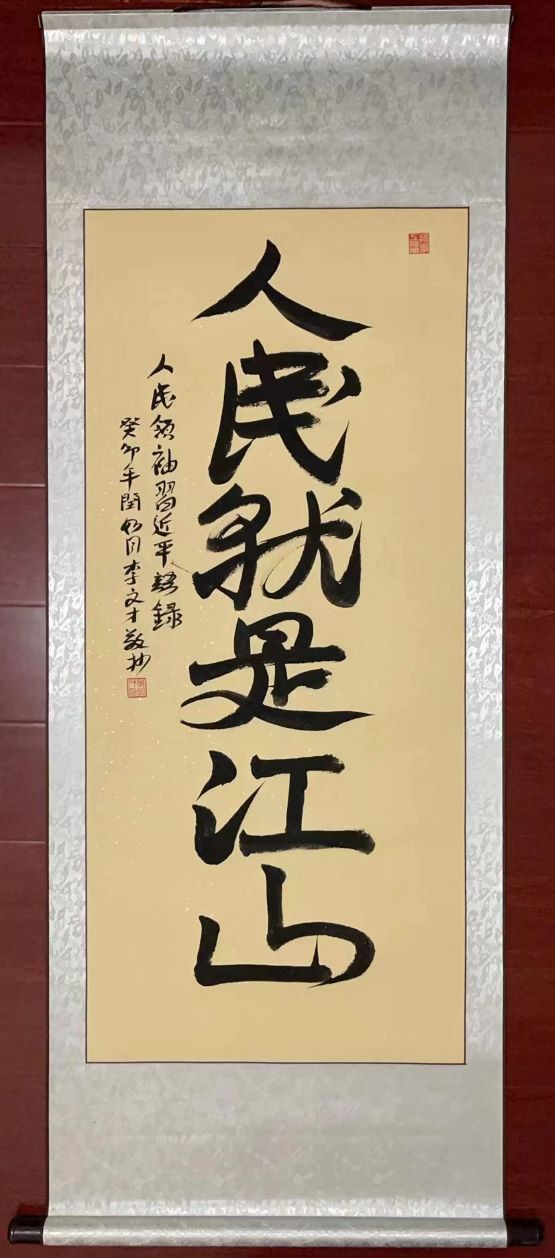 人民就是江山
人民领袖習近平語録
癸卯年閏如月李文才敬抄